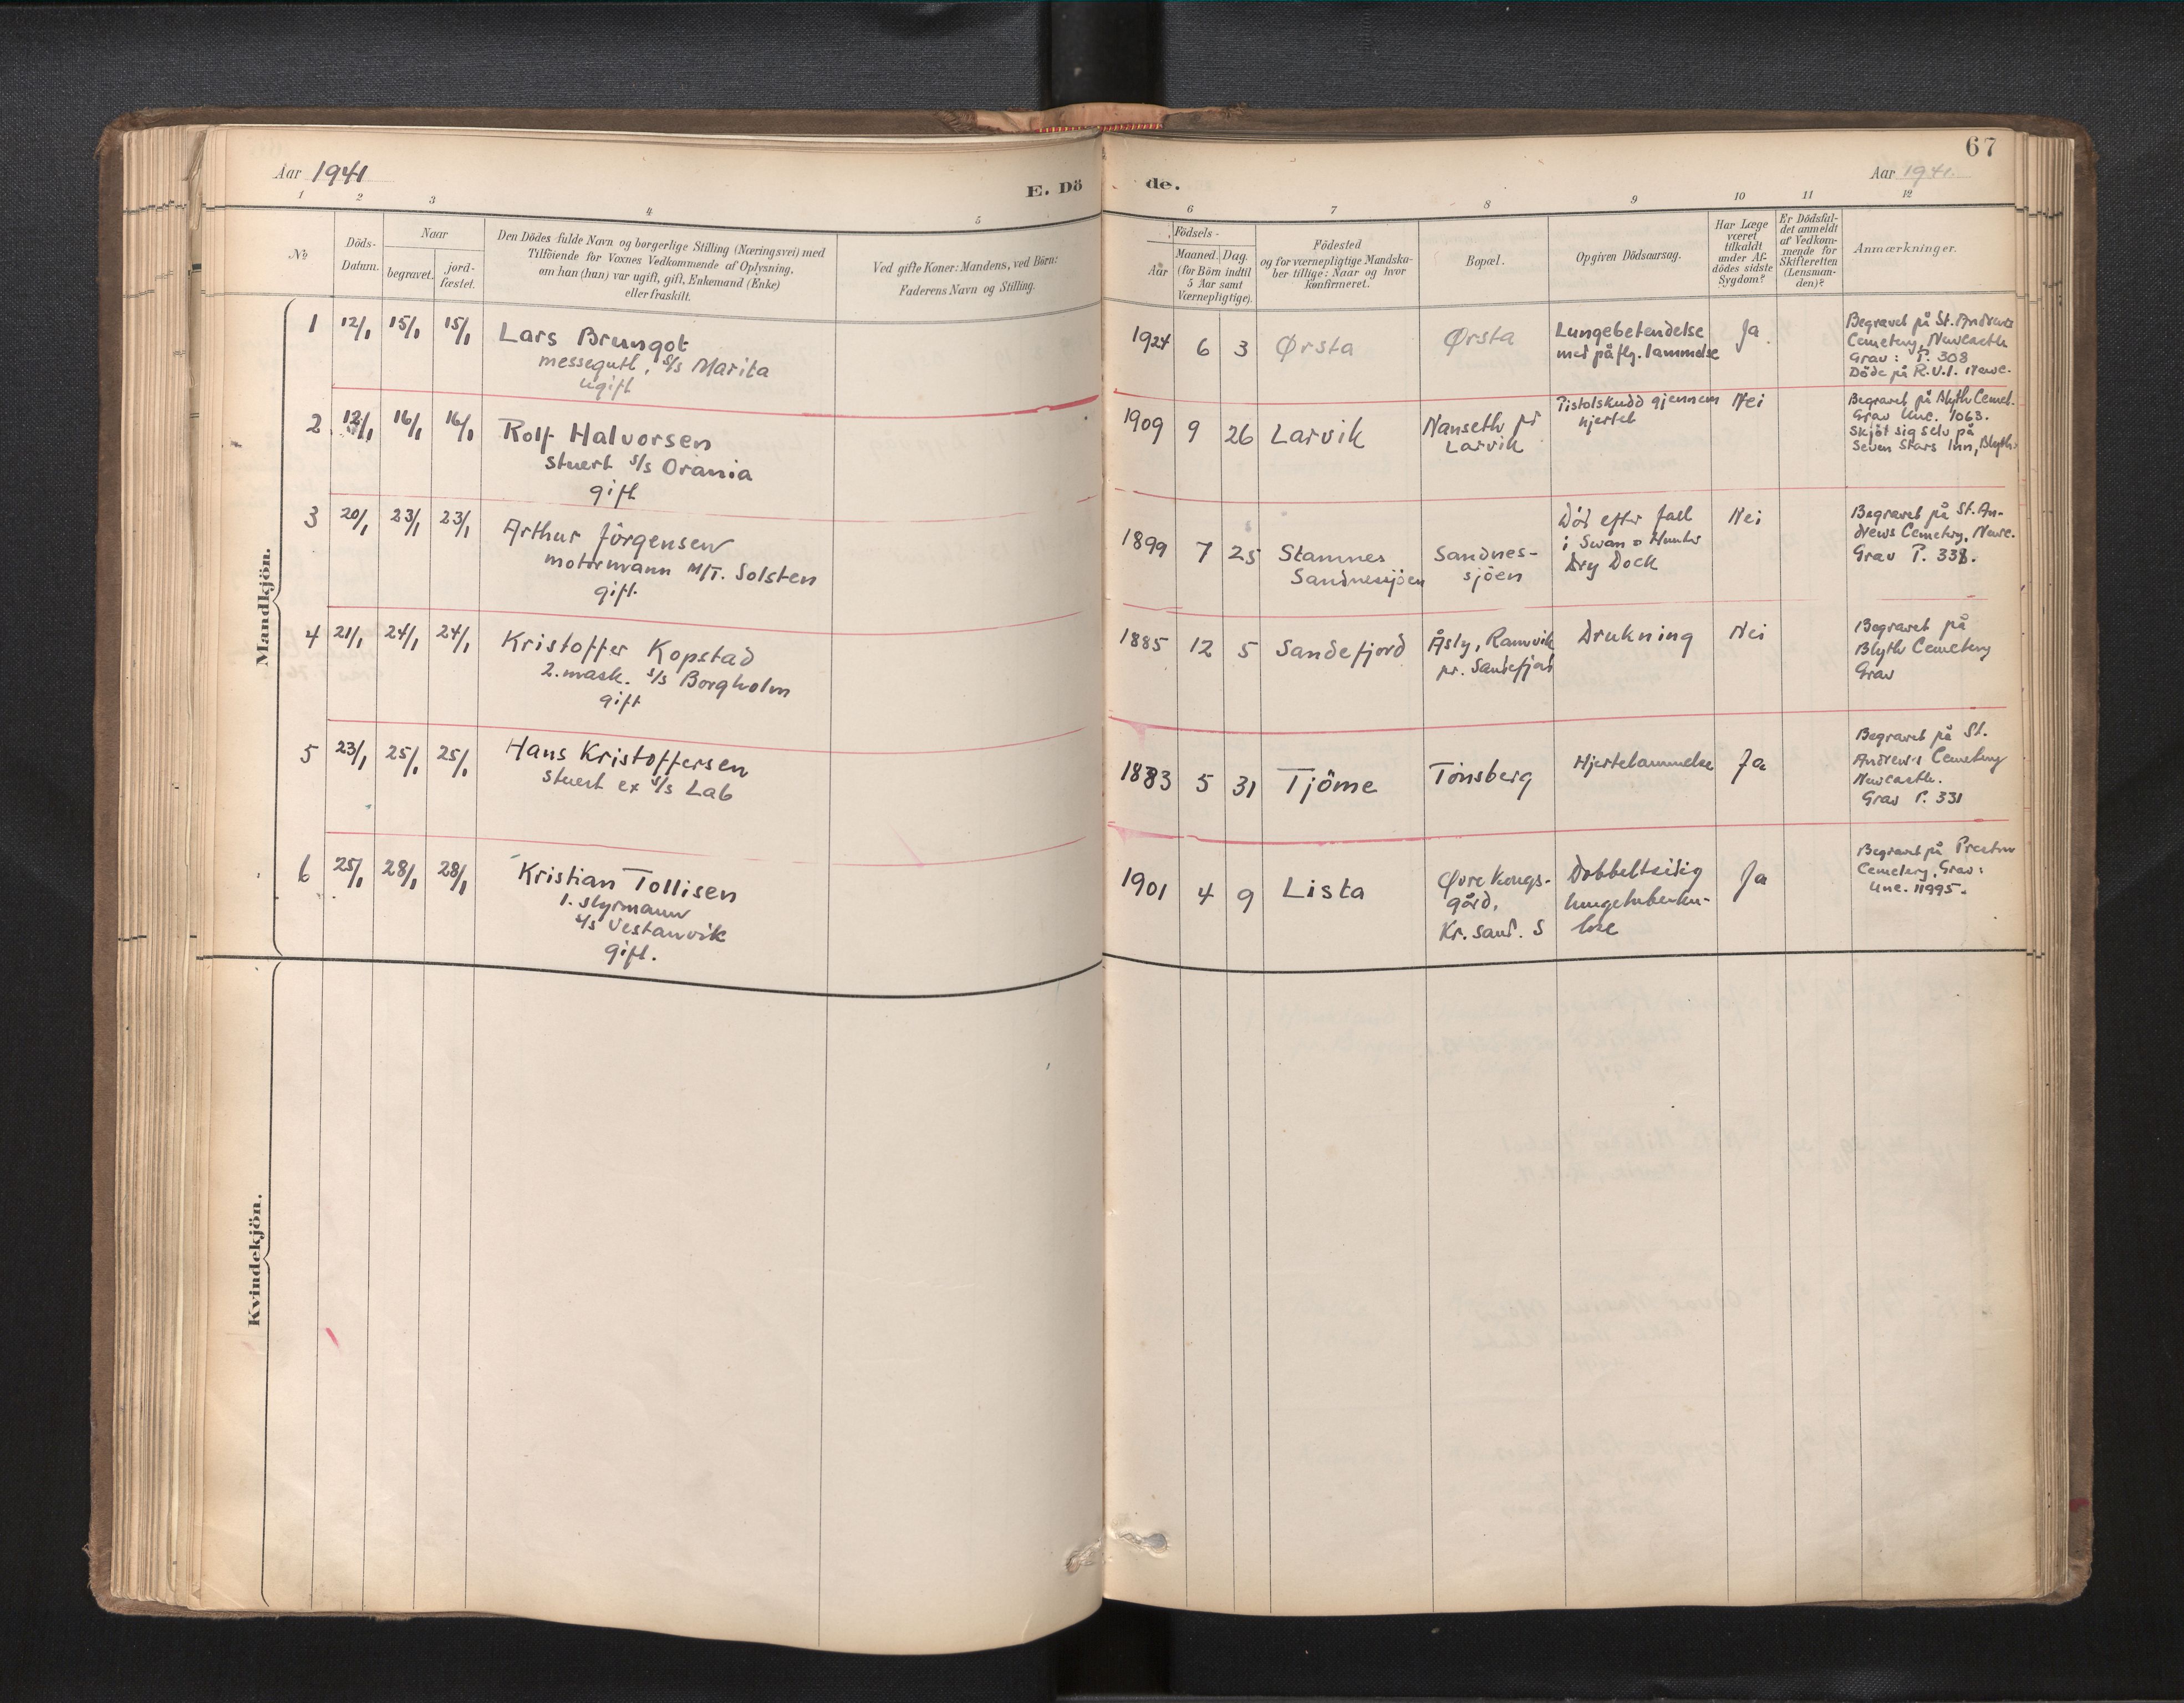 67
Aar 1941
Aar 1941.
E. Dö
de.
1 2 3 4 5 6 7 8 9 10 11 12
№
Döds-
Datum.
Naar
begravet.
jord-
fæstet.
Den Dödes fulde Navn og borgerlige Stilling (Næringsvei) med
Tilföiende for Voxnes Vedkommende af Oplysning,
om han (hun) var ugift, gift, Enkemand (Enke)
eller fraskilt.
Ved gifte Koner: Mandens, ved Börn:
Faderens Navn og Stilling.
Födsels-
Aar
Maaned. Dag.
(for Börn indtil
5 Aar samt
Værnepligtige).
Födested
og for værnepligtige Mandska-
ber tillige: Naar og hvor
konfirmeret.
Bopæl.
Opgiven Dödsaarsag.
Har Læge
været
tilkaldt
under Af-
dödes sidste
Sygdom?
Er Dödsfal-
det anmeldt
af Vedkom-
mende for
Skifteretten
(Lensman-
den)?
Anmærkninger.
Mandkjön.
1 12/1 15/1 15/1
Lars Brungot
messegutt, s/s Marita
ugift
1924 6 3 Ørsta
Ørsta
Lungebetendelse
med påflg. lammelse
Ja
Begravet på St. Andrews
Cemetery, Newcastle
Grav: P. 308
Döde på R.V.I. Newc.
2 12/1 16/1 16/1
Rolf Halvorsen
stuert s/s Orania
gift
1909 9 26 Larvik
Nanseth pr
Larvik
Pistolskudd gjennem
hjertet
Nei
Begravet på Blyth Cemet.
Grav Unc. 1063.
Skjöt sig selv på
Seven Stars Inn, Blyth.
3 20/1 23/1 23/1
Arthur Jörgensen
motormann M/T. Solsten
gift.
1899 7 25 Stamnes
Sandnessjöen
Sandnes-
sjöen
Död efter fall
i Swan & Hunter
Dry Dock
Nei
Begravet på St. An-
drews Cemetery, Newc.
Grav P. 338.
4 21/1 24/1 24/1
Kristoffer Kopstad
2. mask. s/s Borgholm
gift
1885 12 5 Sandefjord
Åsly, Ramvik
pr. Sandefjord
Drukning
Nei
Begravet på
Blyth Cemetery
Grav
5 23/1 25/1 25/1
Hans Kristoffersen
stuert ex s/s Lab
1883 5 31 Tjöme
Tönsberg
Hjertelammelse
Ja
Begravet på St.
Andrew's Cemetery
Newcastle.
Grav P. 331
6 25/1 28/1 28/1
Kristian Tollisen
1. styrmann
s/s Vestanvik
gift.
1901 4 9 Lista
Øvre Kongs-
gård,
Kr. sand. S
Dobbeltsidig
lungetuberku-
lose
Ja
Begravet på Preston
Cemetery, Grav:
Unc. 11995.
Kvindekjön.